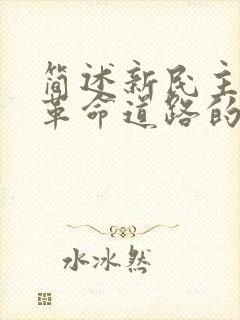 简述新民主
革命道路的
水冰然